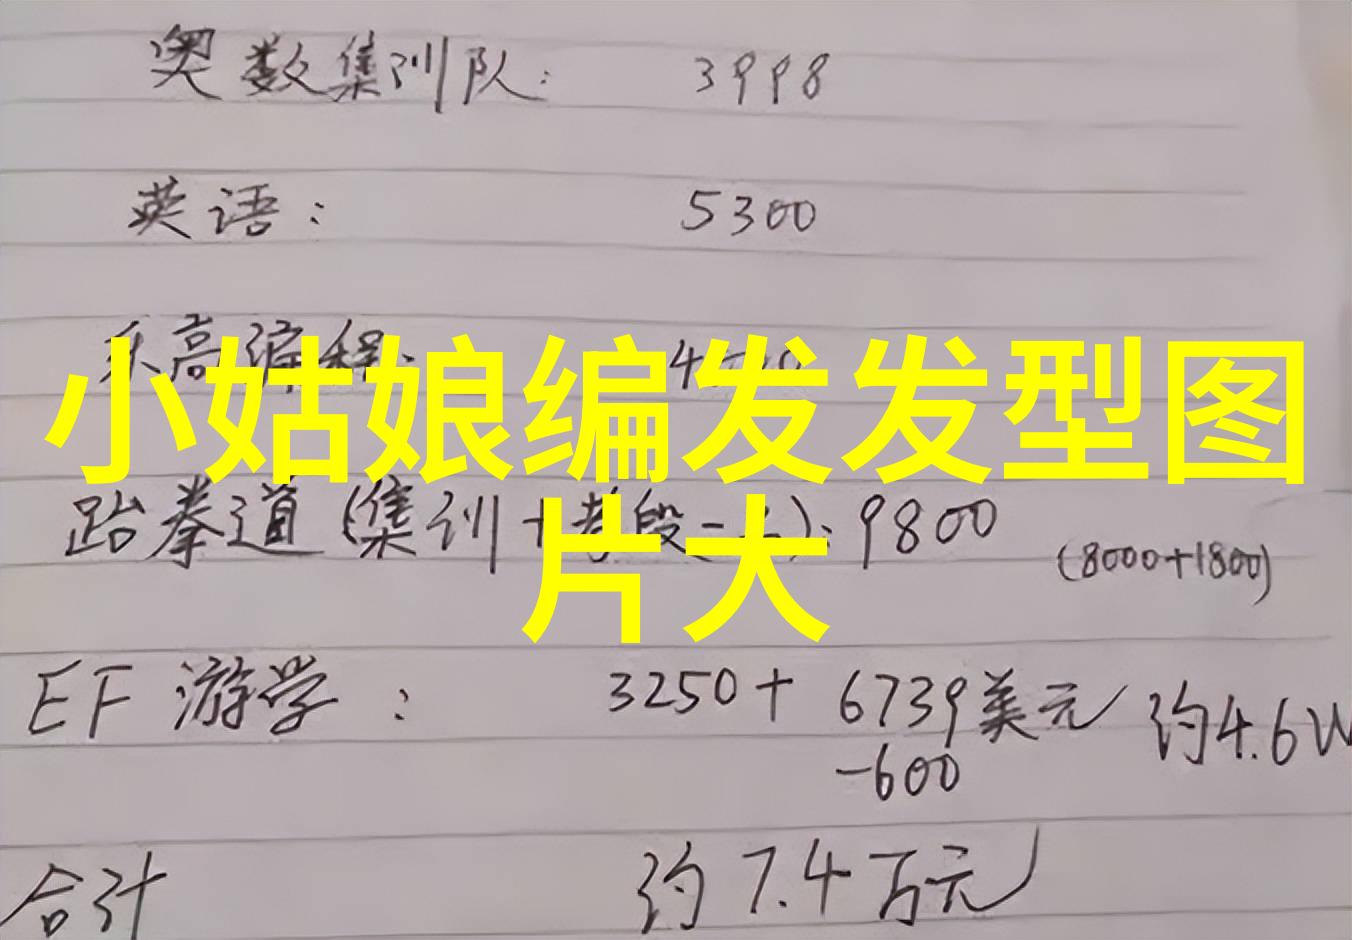 奥数集训队: 3998
英语: 5300
乐高编程:
小姑娘编发发型图
跆拳道(集训+考段一二): 9800
(8000+1800)
片大
EF 游学: 3250+ 6739美元 约4.6W
-600
合计 约7.4万元